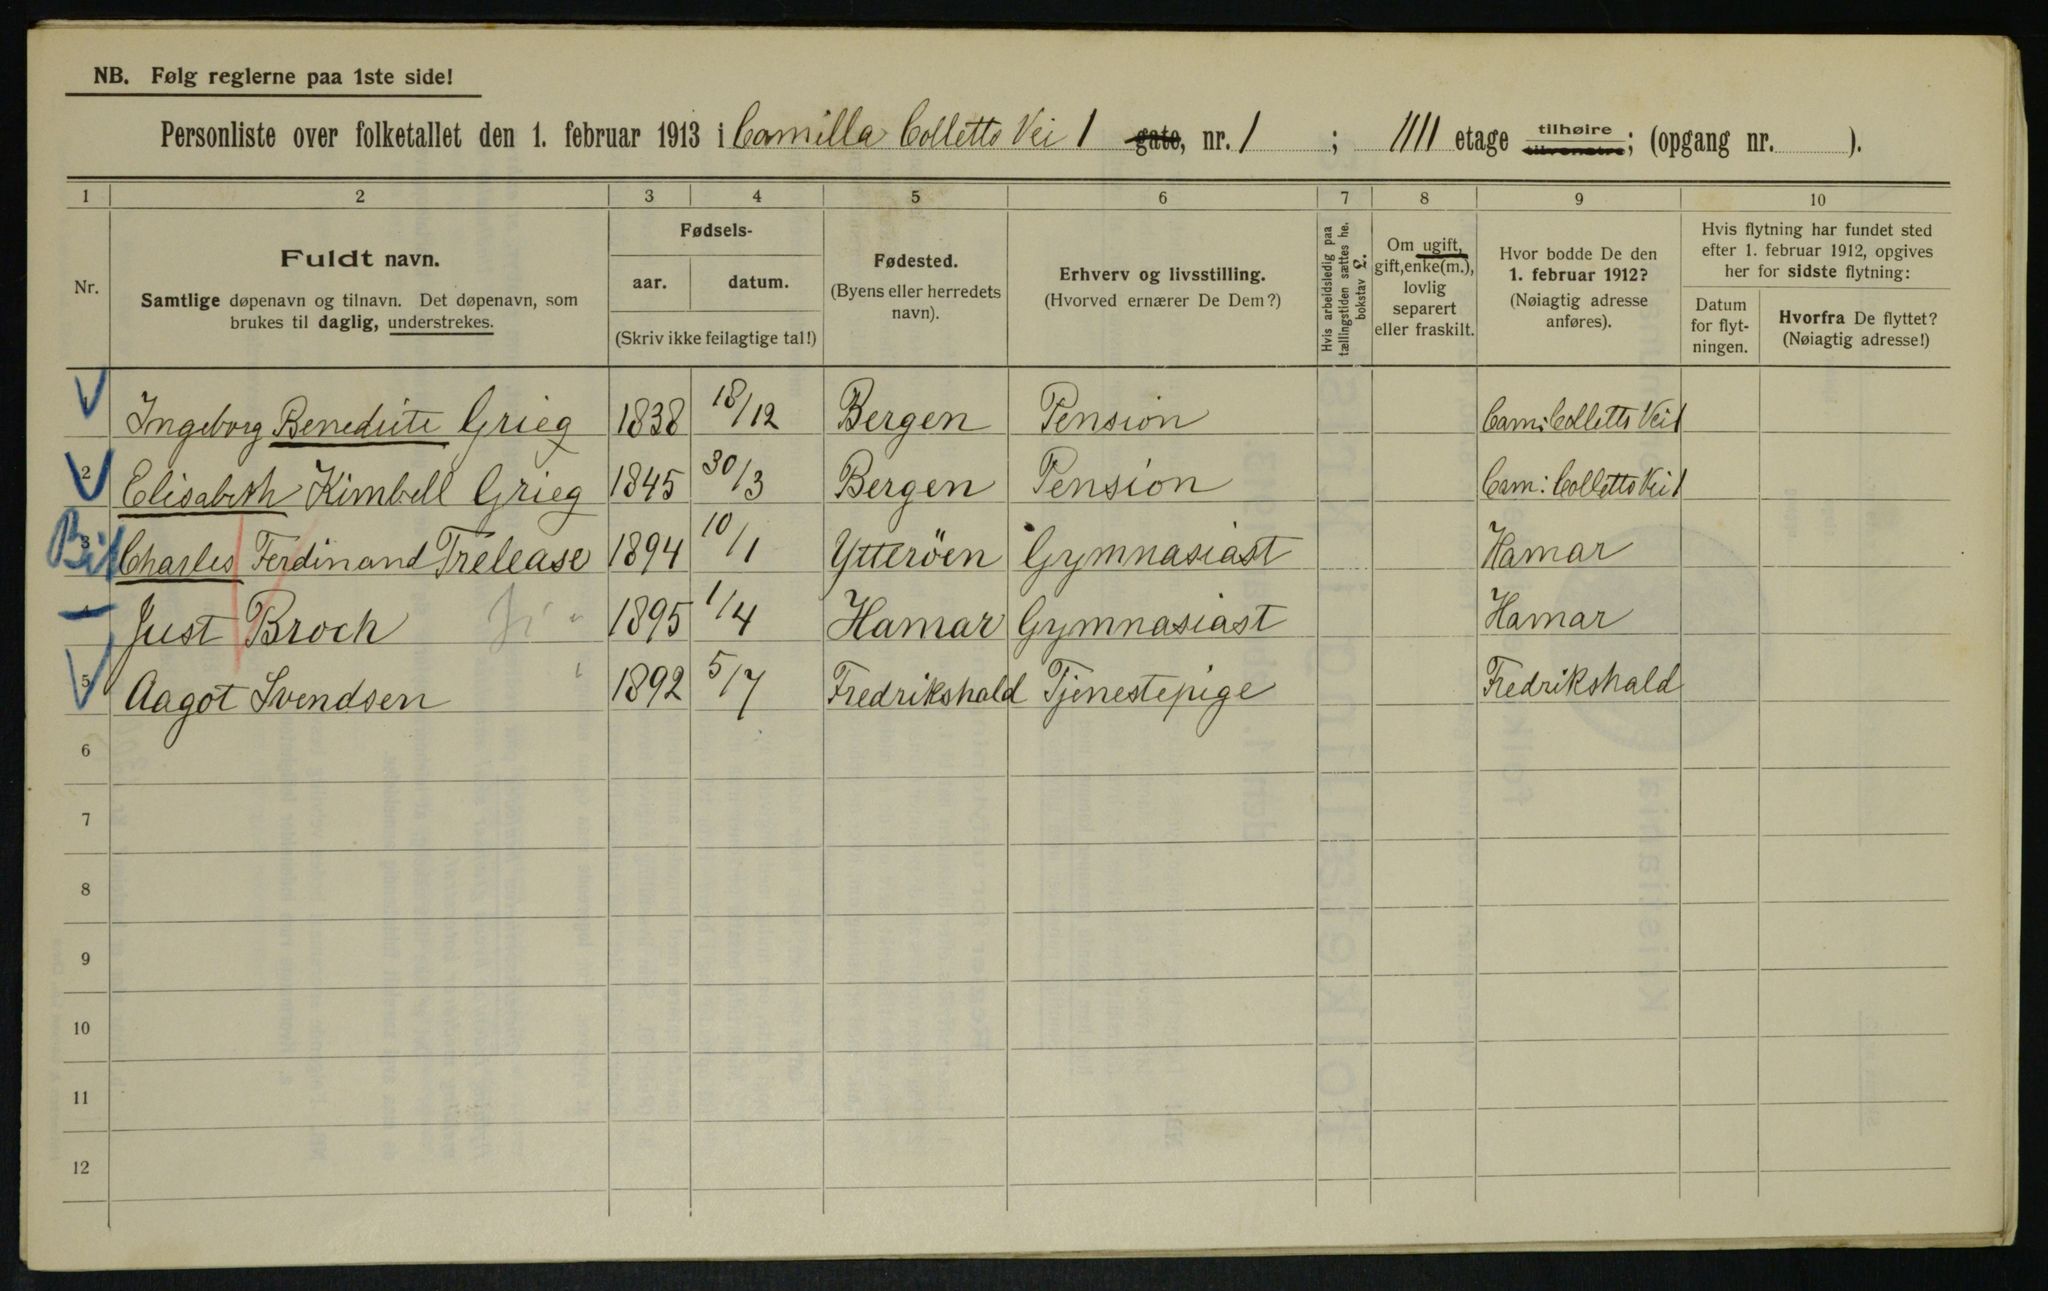 NB. Følg reglerne paa 1ste side!
Personliste over folketallet den 1. februar 1913 i Camilla Colletts Vei 1 gate, nr. 1 ; IIII etage tilhøire tilvenstre; (opgang nr. ).
1 2 3 4 5 6 7 8 9 10
Nr.
Fuldt navn.
Samtlige døpenavn og tilnavn. Det døpenavn, som
brukes til daglig, understrekes.
Fødsels-
aar. datum.
(Skriv ikke feilagtige tal!)
Fødested.
(Byens eller herredets
navn).
Erhverv og livsstilling.
(Hvorved ernærer De Dem?)
Hvis arbeidsledig paa
tællingstiden sættes he.
bokstav L.
Om ugift,
gift, enke(m.),
lovlig
separert
eller fraskilt.
Hvor bodde De den
1. februar 1912?
(Nøiagtig adresse
anføres).
Hvis flytning har fundet sted
efter 1. februar 1912, opgives
her for sidste flytning:
Datum
for flyt-
ningen.
Hvorfra De flyttet?
(Nøiagtig adresse!)
1 Ingeborg Benedicte Grieg 1838 18/12 Bergen Pension Cam: Colletts Vei 1
2 Elisabeth Kimbell Grieg 1845 30/3 Bergen Pension Cam: Colletts Vei 1
3 Charles Ferdinand Trelease 1894 10/1 Ytterøen Gymnasiast Hamar
4 Just Broch 1895 1/4 Hamar Gymnasiast Hamar
5 Aagot Svendsen 1892 5/7 Fredrikshald Tjenestepige Fredrikshald
6
7
8
9
10
11
12